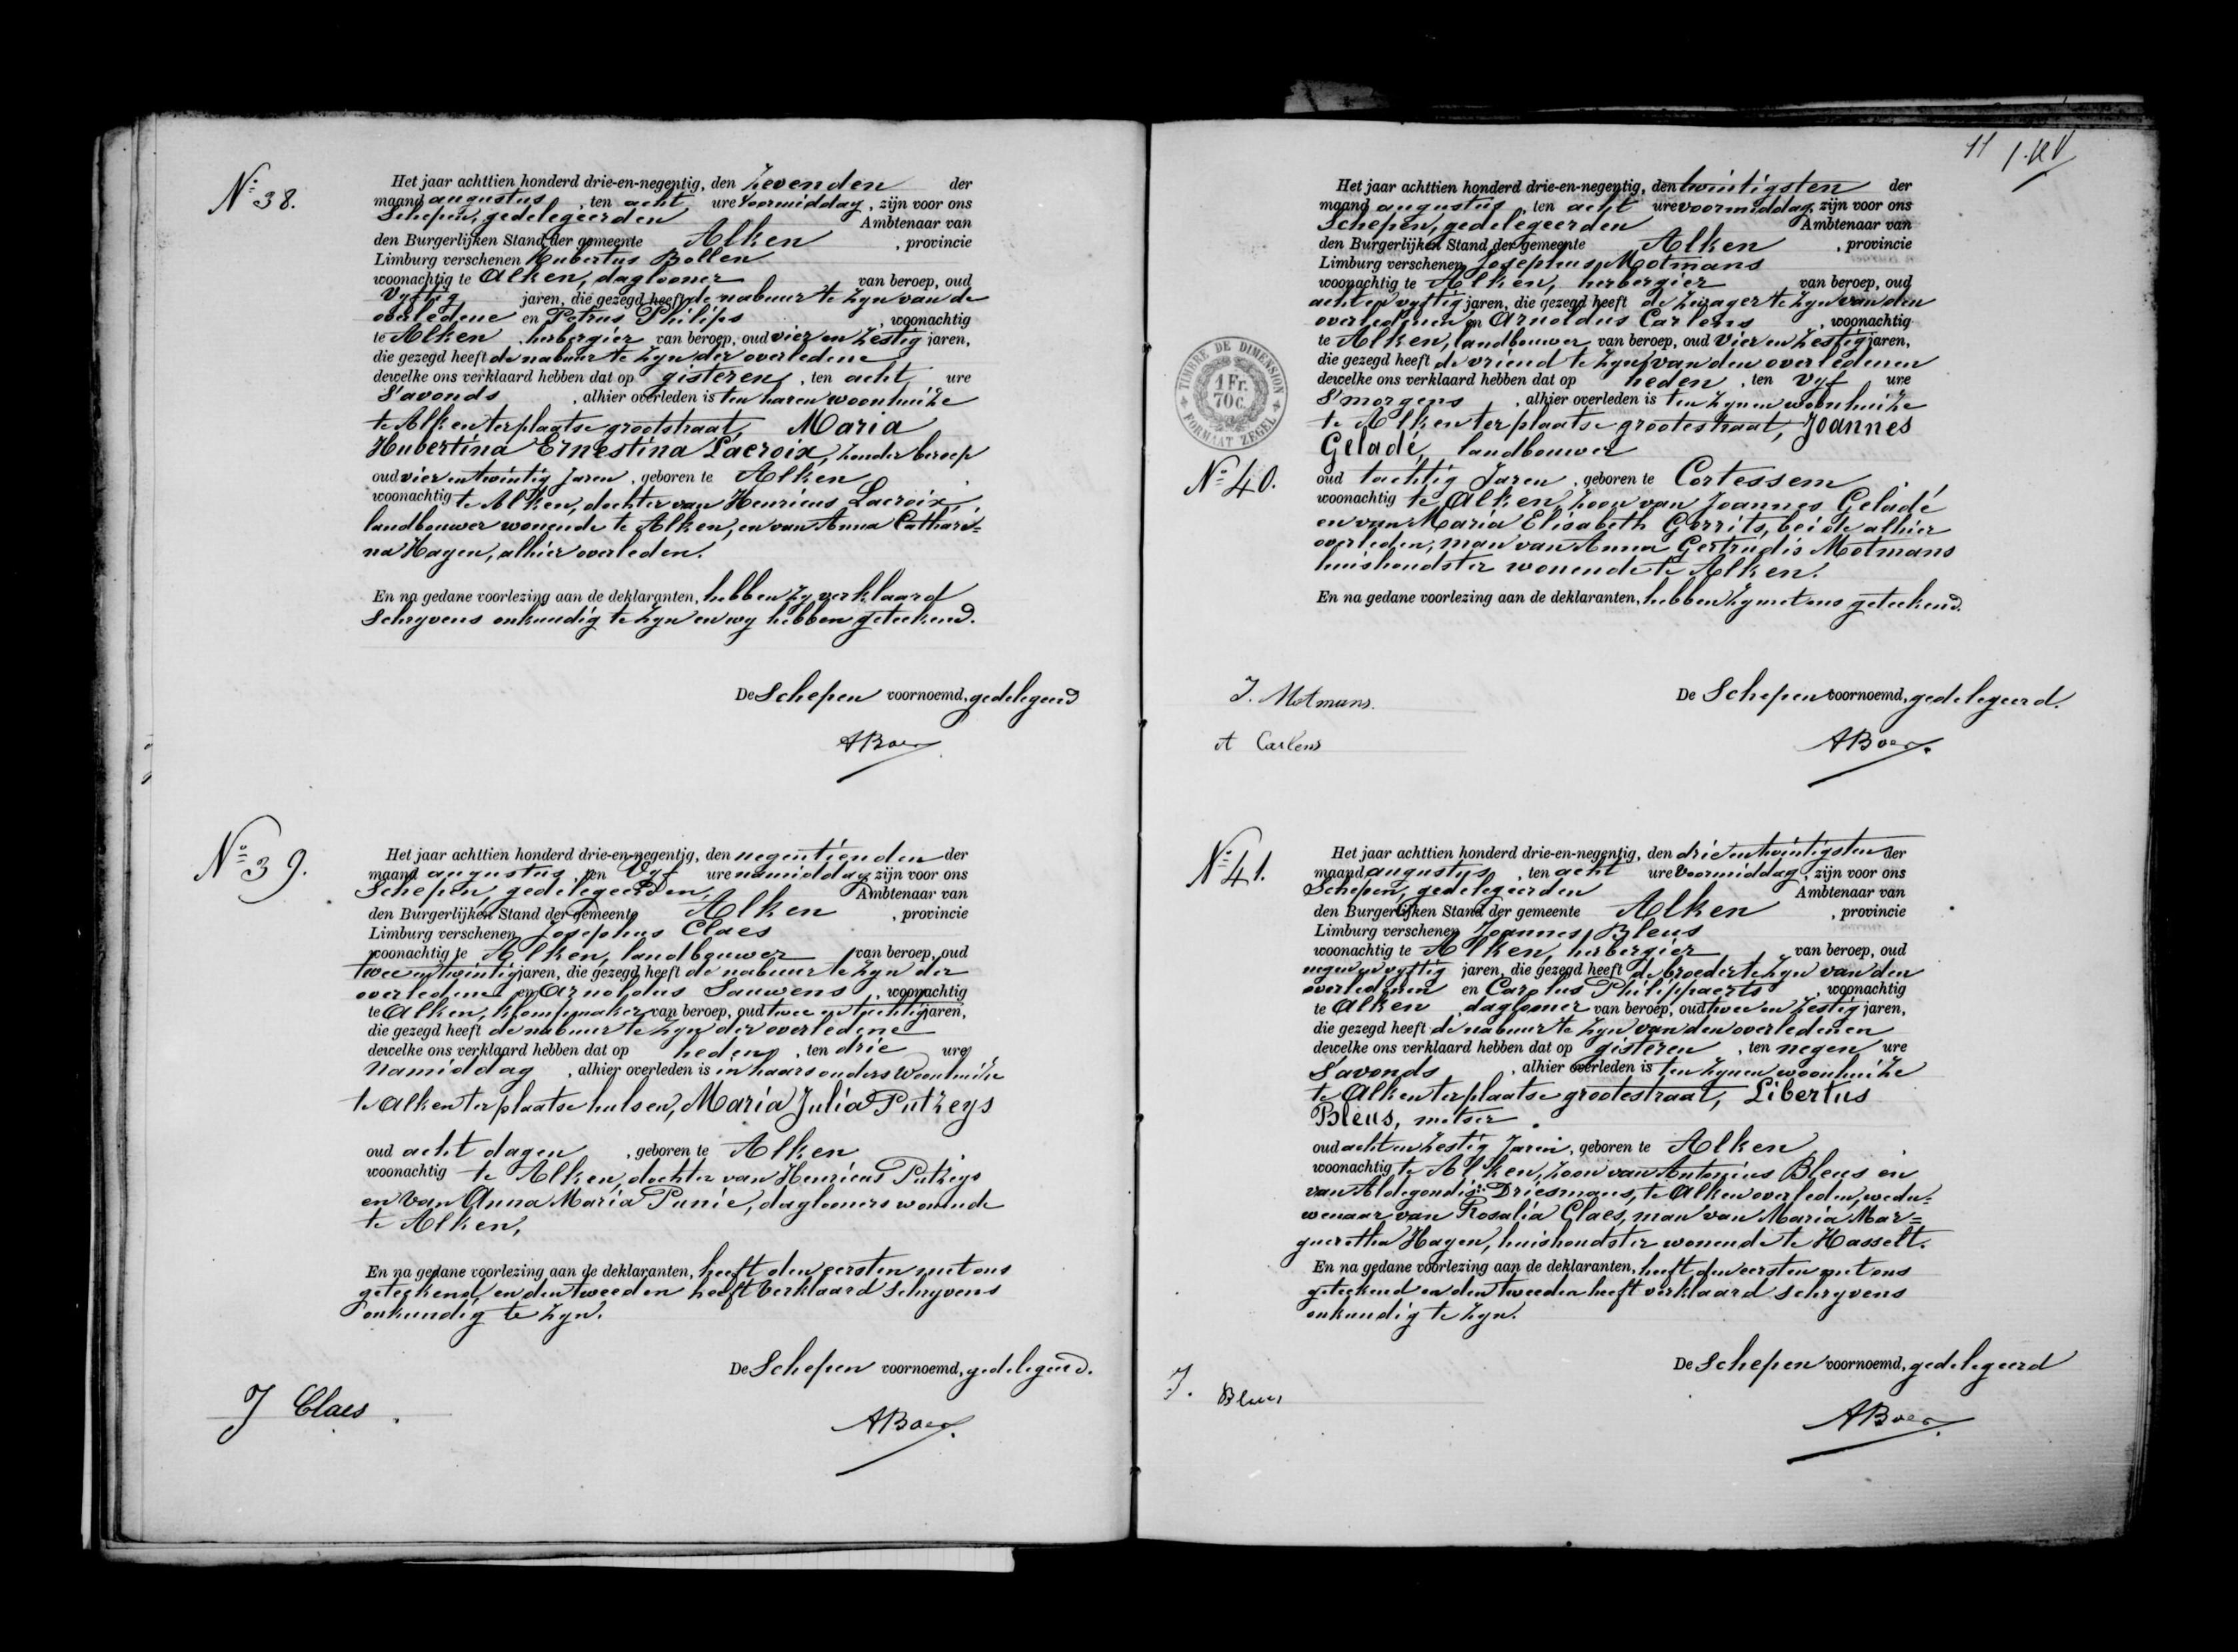 Nº 38.
Het jaar achttien honderd drie-en-negentig, den zevenden der
maand augustus, ten acht ure voormiddag, zijn voor ons
Schepen, gedelegeerden Ambtenaar van
den Burgerlijken Stand der gemeente Alken, provincie
Limburg verschenen Hubertus Bollen
woonachtig te Alken, daglooner van beroep, oud
vyftig jaren, die gezegd heeft de nabuur te zyn van de
overledene en Petrus Philips, woonachtig
te Alken, herbergier van beroep, oud vier en zestig jaren,
die gezegd heeft de nabuur te zyn der overledene
dewelke ons verklaard hebben dat op gisteren, ten acht ure
S'avonds, alhier overleden is ten haren woonhuize
te Alken ter plaatse grootstraat, Maria
Hubertina Ernestina Lacroix, zonder beroep
oud vier en twintig Jaren, geboren te Alken,
woonachtig te Alken, dochter van Henricus Lacroix,
landbouwer wonende te Alken, en van Anna Cathari=
na Hayen, alhier overleden.
En na gedane voorlezing aan de deklaranten, hebben zy verklaard
Schryvens onkundig te zyn en wy hebben geteekend.
De Schepen voornoemd, gedelegeerd
ABoes
Nº 39.
Het jaar achttien honderd drie-en-negentig, den negentienden der
maand augustus, ten Vyf ure namiddag zijn voor ons
Schepen, gedelegeerden, Ambtenaar van
den Burgerlijken Stand der gemeente Alken, provincie
Limburg verschenen Josephus Claes
woonachtig te Alken, landbouwer van beroep, oud
twee en twintig jaren, die gezegd heeft de nabuur te zyn der
overledene en Arnoldus Sauwens, woonachtig
te Alken, klompmaker van beroep, oud twee en tachtig jaren,
die gezegd heeft de nabuur te zyn der overledene
dewelke ons verklaard hebben dat op heden, ten drie ure
Namiddag, alhier overleden is in haars ouders woonhuize
te Alken ter plaatse hulsen, Maria Julia Putzeys
oud acht dagen, geboren te Alken
woonachtig te Alken, dochter van Henricus Putzeys
en van Anna Maria Punie, dagloners wonende
te Alken,
En na gedane voorlezing aan de deklaranten, heeft den eersten met ons
geteekend en den tweeden heeft verklaard Schryvens
onkundig te zyn.
De Schepen voornoemd, gedelegeerd.
J Claes.
ABoes.
11
Het jaar achttien honderd drie-en-negentig, den twintigsten der
maand augustus, ten acht ure voormiddag, zijn voor ons
Schepen, gedelegeerden Ambtenaar van
den Burgerlijken Stand der gemeente Alken, provincie
Limburg verschenen Josephus Motmans
woonachtig te Alken, herbergier van beroep, oud
acht en vyftig jaren, die gezegd heeft de zwager te zyn van den
overledenen en Arnoldus Carlens, woonachtig
te Alken, landbouwer van beroep, oud vier en zestig jaren,
die gezegd heeft de vriend te zyn van den overledenen
dewelke ons verklaard hebben dat op heden, ten Vyf ure
S'morgens, alhier overleden is ten zynen woonhuize
te Alken ter plaatse grootestraat, Joannes
Geladé, landbouwer
TIMBRE DE DIMENSION
1 Fr.
70 c.
FORMAAT ZEGEL
Nº 40.
oud tachtig Jaren, geboren te Cortessem,
woonachtig te Alken, zoon van Joannes Geladé
en van Maria Elisabeth Gerrits, beide alhier
overleden, man van Anna Gertrudis Motmans
huishoudster wonende te Alken.
En na gedane voorlezing aan de deklaranten, hebben zy met ons geteekend.
De Schepen voornoemd, gedelegeerd.
J. Motmans.
A Carlens
ABoes.
Nº 41.
Het jaar achttien honderd drie-en-negentig, den drie en twintigsten der
maand augustus, ten acht ure voormiddag, zijn voor ons
Schepen, gedelegeerden Ambtenaar van
den Burgerlijken Stand der gemeente Alken, provincie
Limburg verschenen Joannes Bleus
woonachtig te Alken, herbergier van beroep, oud
negen en vyftig jaren, die gezegd heeft de broeder te zyn van den
overledenen en Carolus Philippaerts, woonachtig
te Alken daglooner van beroep, oud twee en zestig jaren,
die gezegd heeft de nabuur te zyn van den overledenen
dewelke ons verklaard hebben dat op gisteren, ten negen ure
S'avonds, alhier overleden is ten zynen woonhuize
te Alken ter plaatse grootestraat, Libertus
Bleus, metser.
oud acht en zestig Jaren, geboren te Alken,
woonachtig te Alken, zoon van Antonius Bleus en
van Aldegondis Driesmans, te Alken overleden, wedu=
wenaar van Rosalia Claes, man van Maria Mar=
gueretha Hayen, huishoudster wonende te Hasselt.
En na gedane voorlezing aan de deklaranten, heeft den eersten met ons
geteekend en den tweeden heeft verklaard Schryvens
onkundig te zyn.
De Schepen voornoemd, gedelegeerd
J. Bleus
ABoes.